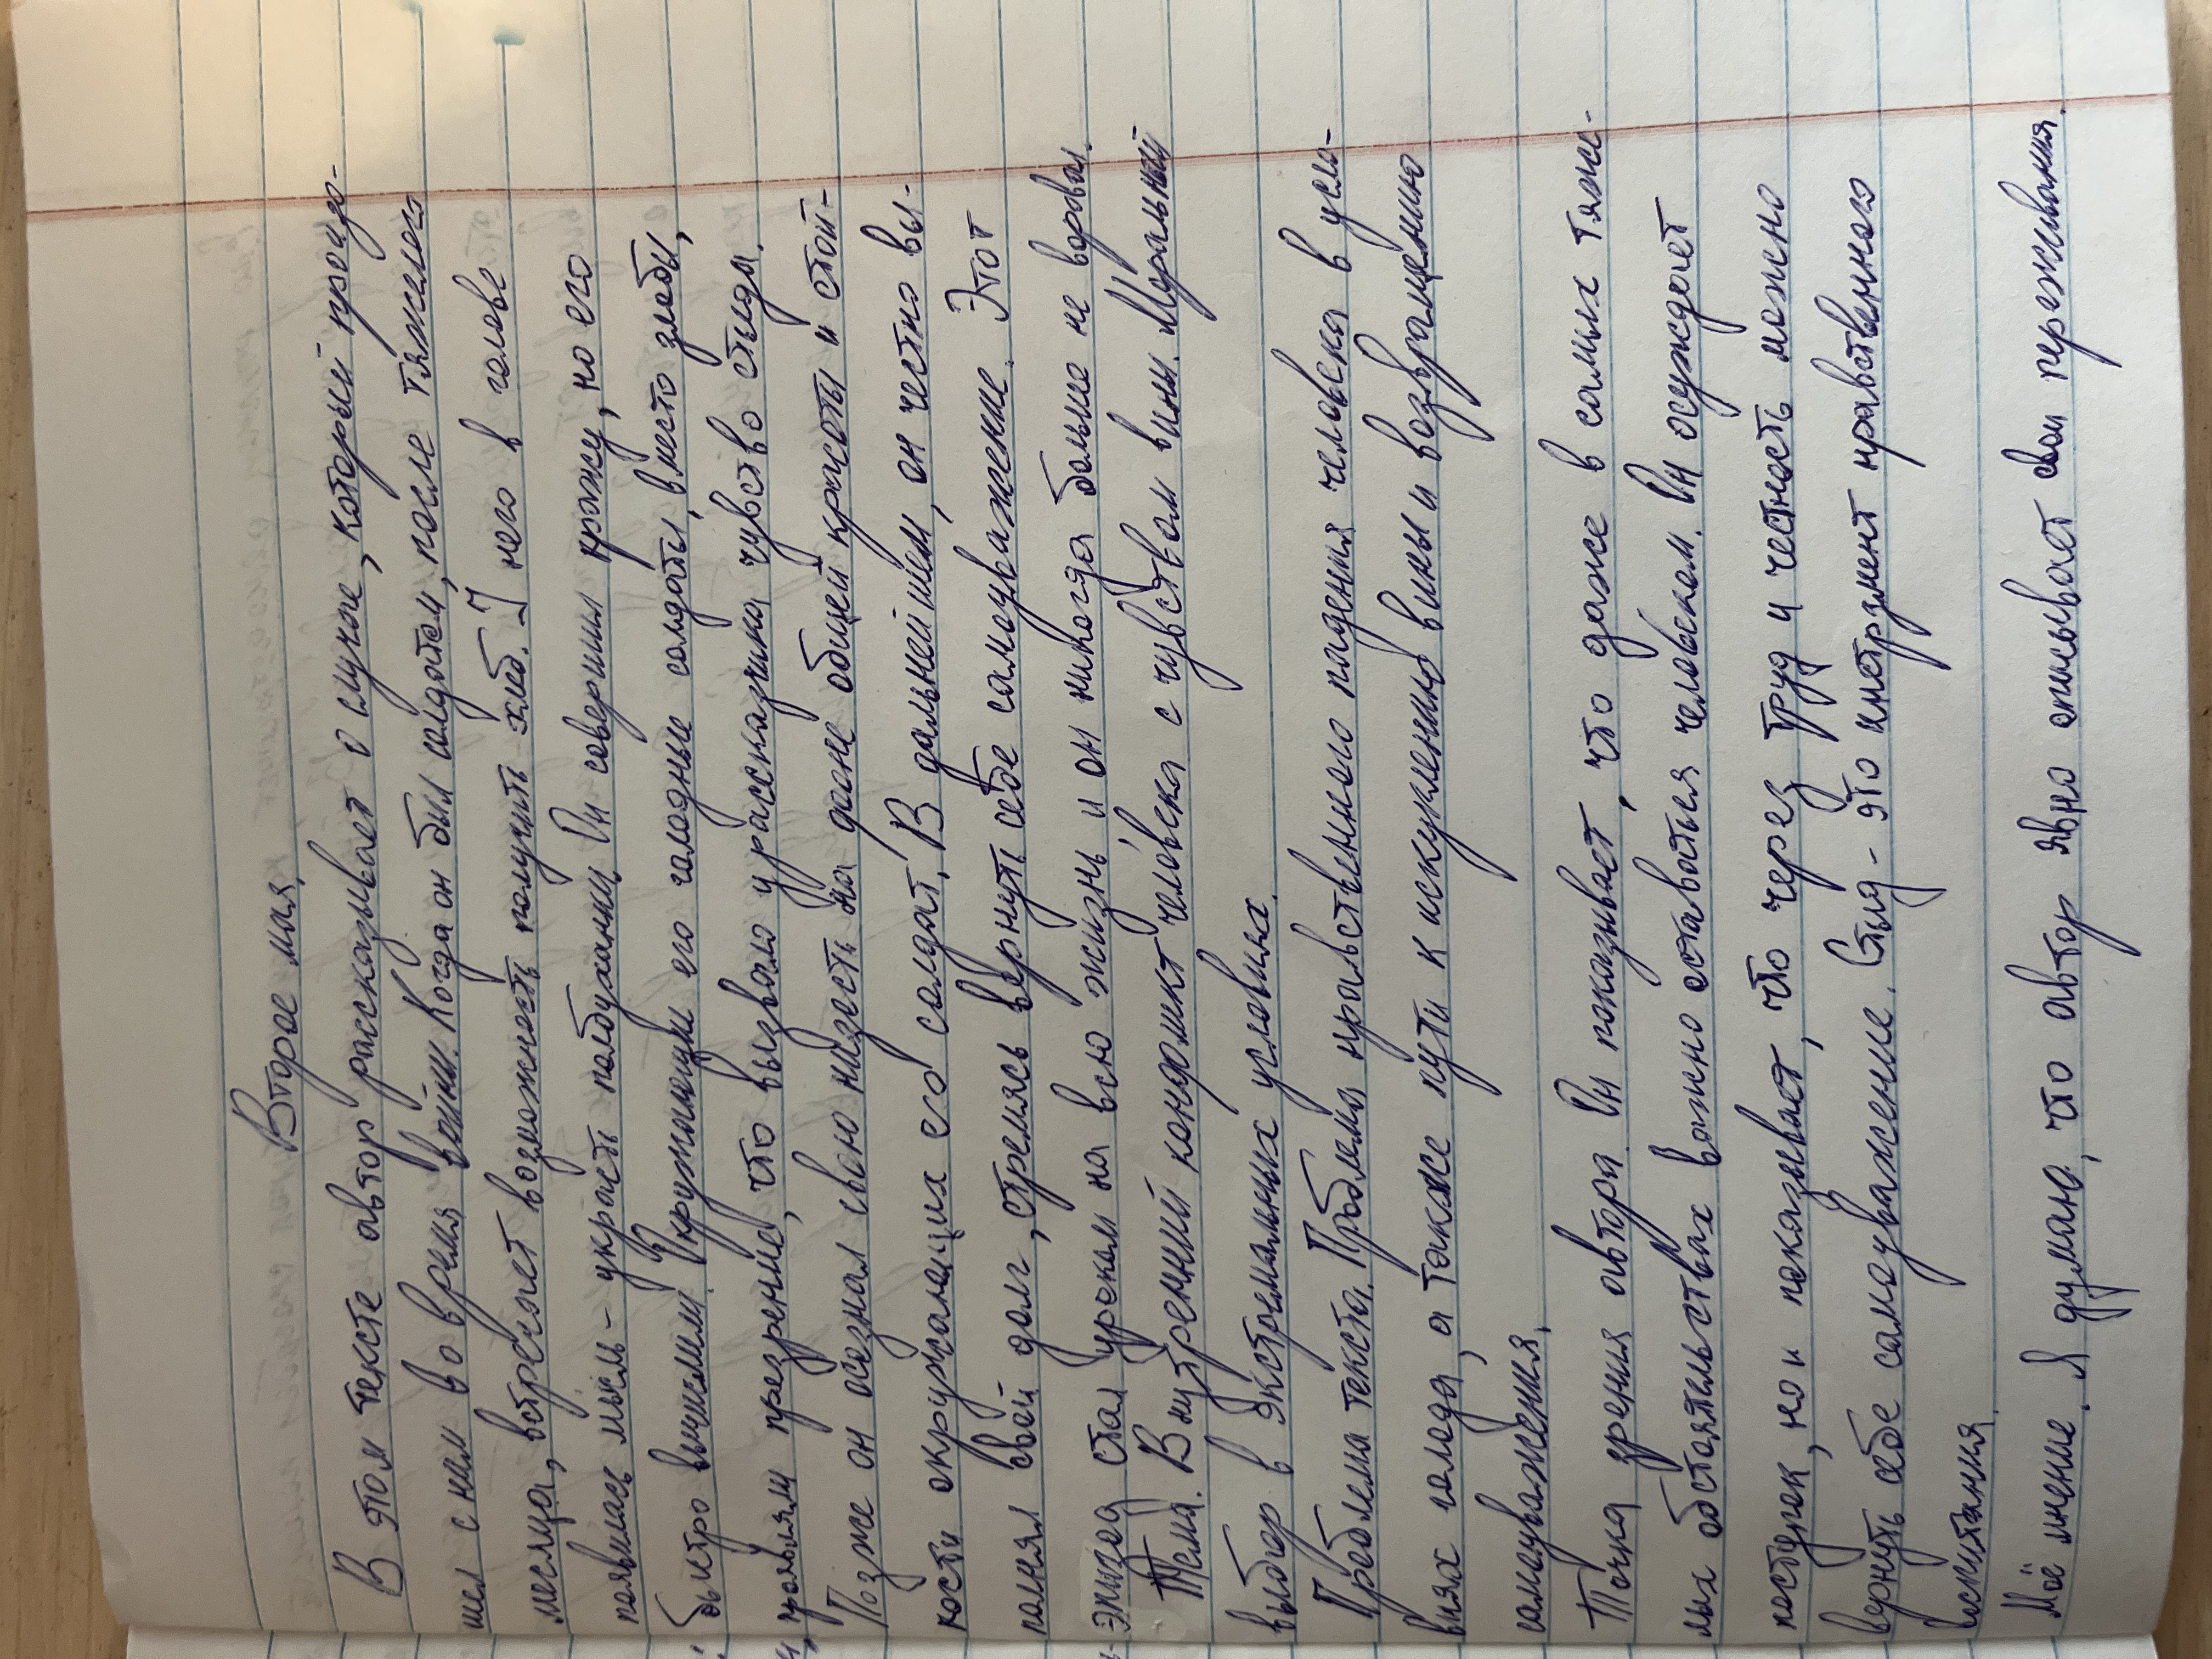 Второе мая.
В этом тексте автор рассказывает о случае, который произо-
шел с ним во время войны. Когда он был солдатом, после тяжелого
месяца, встречает возможность получить хлеб. У него в голове
появилась мысль - украсть полбуханки. Он совершил кражу, но его
быстро вычислили. Окружающие его голодные солдаты, вместо злобы,
проявили презрение, что вызвало у рассказчика чувство стыда.
Позже он осознал свою низость на фоне общей красоты и стой-
кости окружающих его солдат. В дальнейшем, он честно вы-
полнял свой долг, стремясь вернуть себе самоуважение. Этот
эпизод стал уроком на всю жизнь и он никогда больше не воровал.
Тема. Внутренний конфликт человека с чувством вины. Моральный
выбор в экстремальных условиях.
Проблема текста. Проблема нравственного падения человека в усло-
виях голода, а также пути к искуплению вины и возвращению
самоуважения.
Точка зрения автора. Он показывает, что даже в самых тяже-
лых обстоятельствах важно оставаться человеком. Он осуждает
поступок, но и показывает, что через труд и честность можно
вернуть себе самоуважение. Стыд - это инструмент нравственного
воспитания.
Моё мнение. Я думаю, что автор явно описывает свои переживания.